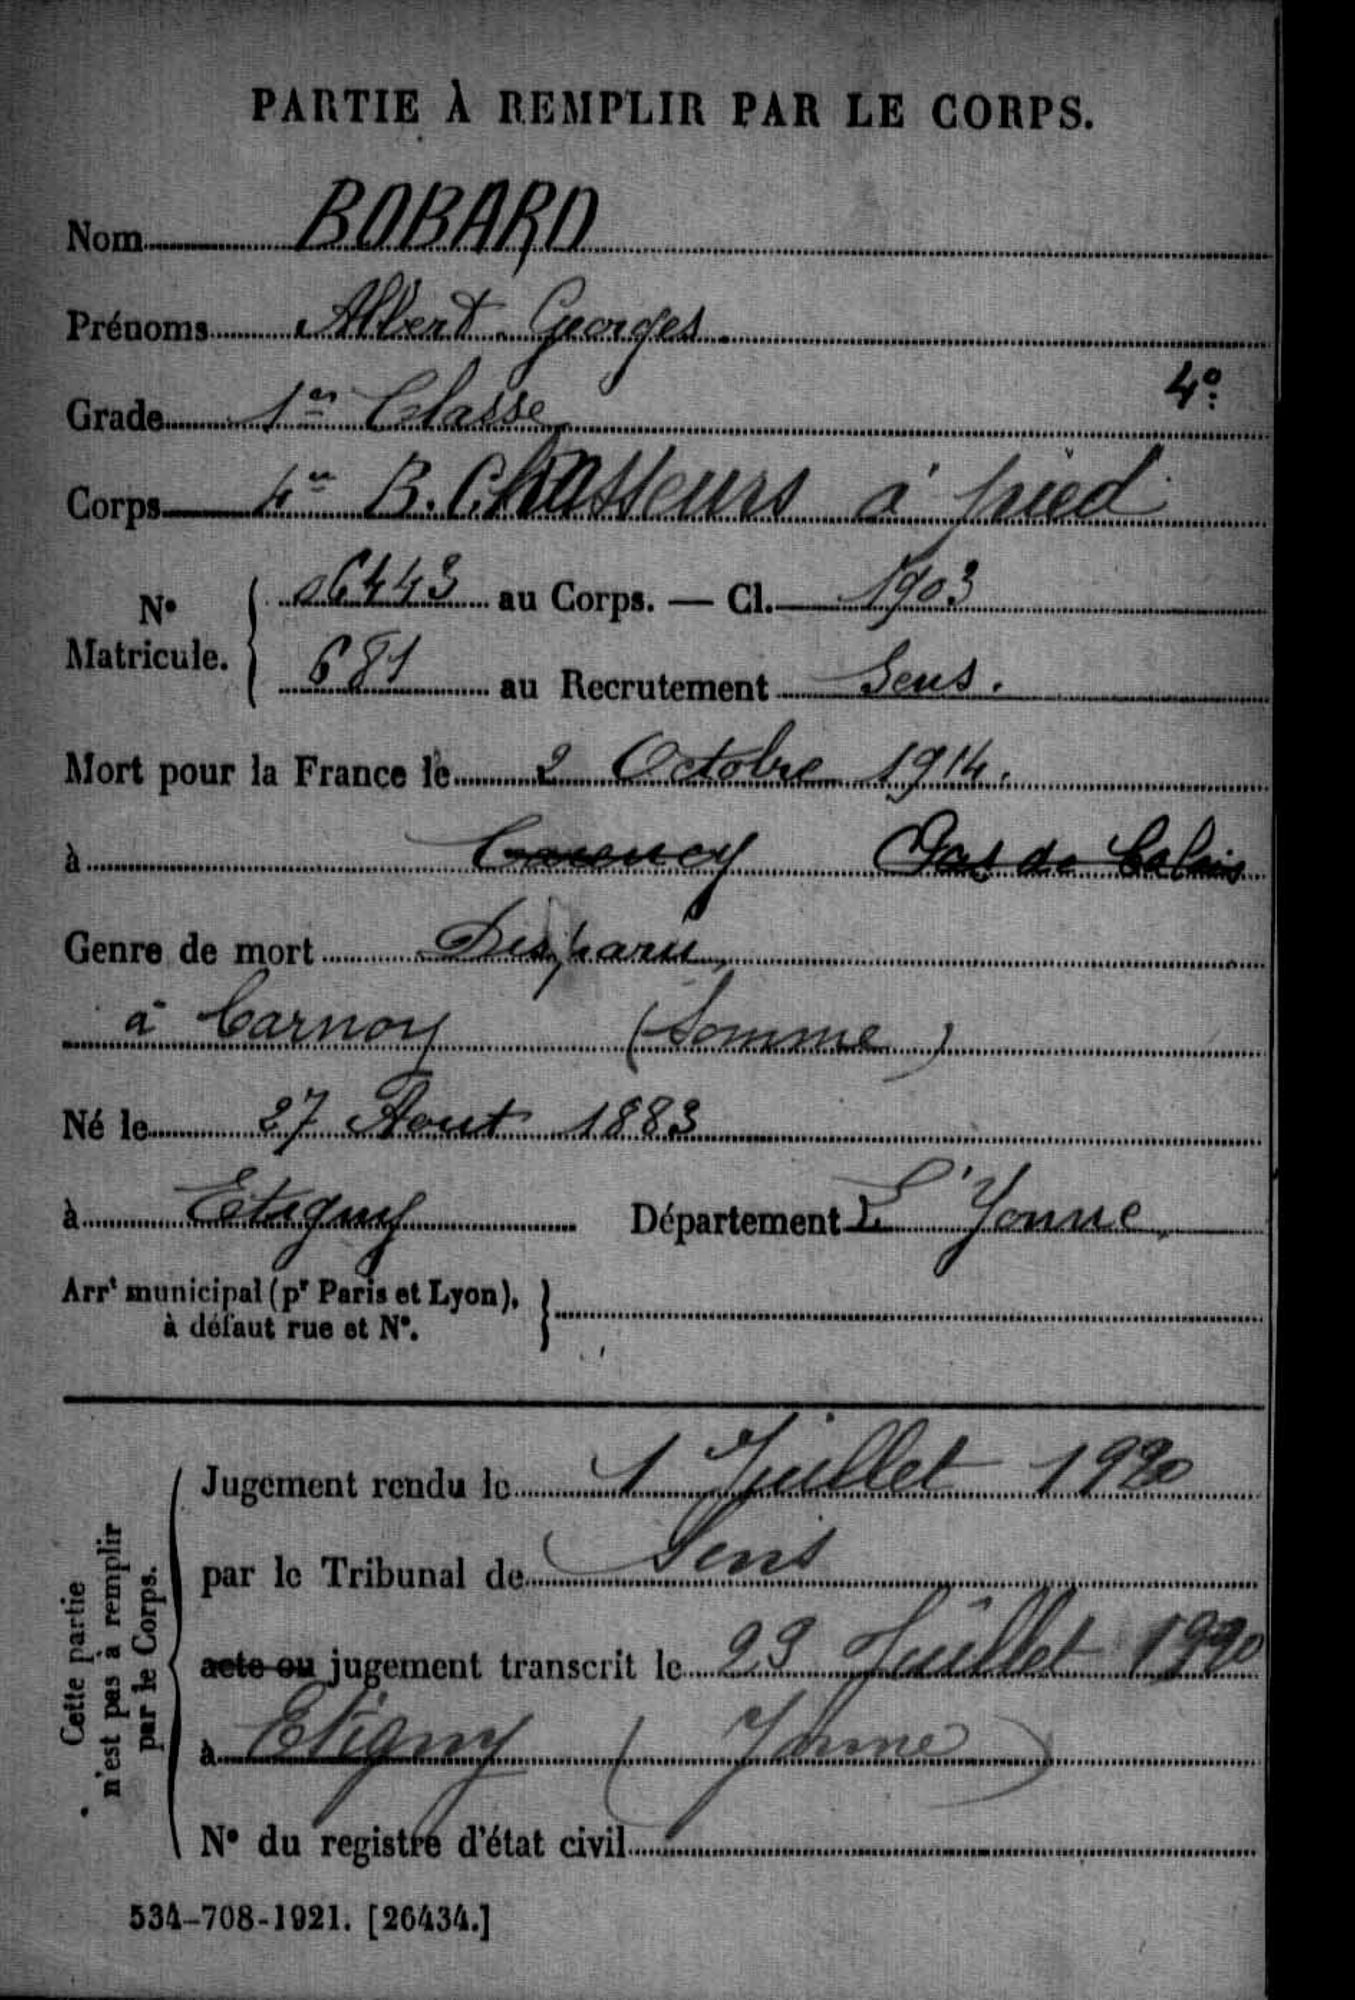 PARTIE À REMPLIR PAR LE CORPS.
Nom BOBARD
Prénoms Albert Georges
4º
Grade 1re Classe
Corps 4me B. Chasseurs à pied
Nº Matricule. 06443 au Corps. — Cl. 1903
681 au Recrutement Sens.
Mort pour la France le 2 Octobre 1914.
à Carency Pas de Calais
Genre de mort Disparu
à Carnoy (Somme)
Né le 27 Aout 1883
à Etigny Département L'Yonne
Arrt municipal (pr Paris et Lyon),
à défaut rue et Nº.
Cette partie
n'est pas à remplir
par le Corps.
Jugement rendu le 1 Juillet 1920
par le Tribunal de Sens
acte ou jugement transcrit le 23 Juillet 1920
à Etigny (Yonne)
Nº du registre d'état civil
534-708-1921. [26434.]